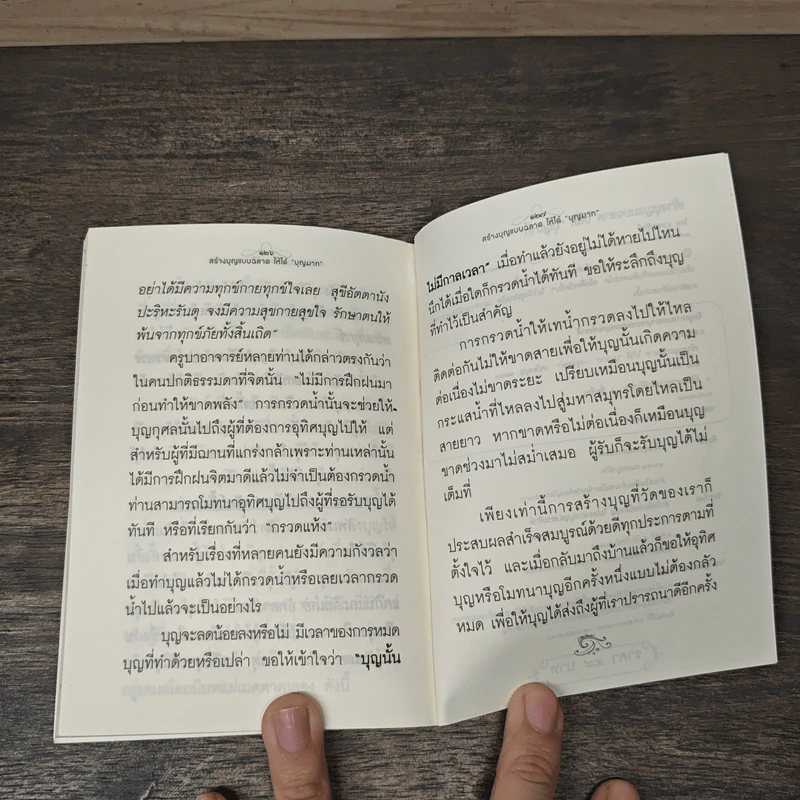 ๑๒๖
สร้างบุญแบบฉลาด ให้ได้ "บุญมาก"
อย่าได้มีความทุกข์กายทุกข์ใจเลย สุขีอัตตานัง
ปะริหะรันตุ จงมีความสุขกายสุขใจ รักษาตนให้
พ้นจากทุกข์ภัยทั้งสิ้นเถิด"
ครูบาอาจารย์หลายท่านได้กล่าวตรงกันว่า
ในคนปกติธรรมดาที่จิตนั้น "ไม่มีการฝึกฝนมา
ก่อนทำให้ขาดพลัง" การกรวดน้ำนั้นจะช่วยให้
บุญกุศลนั้นไปถึงผู้ที่ต้องการอุทิศบุญไปให้ แต่
สำหรับผู้ที่มีฌานที่แกร่งกล้าเพราะท่านเหล่านั้น
ได้มีการฝึกฝนจิตมาดีแล้วไม่จำเป็นต้องกรวดน้ำ
ท่านสามารถโมทนาอุทิศบุญไปถึงผู้ที่รอรับบุญได้
ทันที หรือที่เรียกกันว่า "กรวดแห้ง"
สำหรับเรื่องที่หลายคนยังมีความกังวลว่า
เมื่อทำบุญแล้วไม่ได้กรวดน้ำหรือเลยเวลากรวด
น้ำไปแล้วจะเป็นอย่างไร
บุญจะลดน้อยลงหรือไม่ มีเวลาของการหมด
บุญที่ทำด้วยหรือเปล่า ขอให้เข้าใจว่า "บุญนั้น
๑๒๗
สร้างบุญแบบฉลาด ให้ได้ "บุญมาก"
ไม่มีกาลเวลา" เมื่อทำแล้วยังอยู่ไม่ได้หายไปไหน
นึกได้เมื่อใดก็กรวดน้ำได้ทันที ขอให้ระลึกถึงบุญ
ที่ทำไว้เป็นสำคัญ
การกรวดน้ำให้เทน้ำกรวดลงไปให้ไหล
ติดต่อกันไม่ให้ขาดสายเพื่อให้บุญนั้นเกิดความ
ต่อเนื่องไม่ขาดระยะ เปรียบเหมือนบุญนั้นเป็น
กระแสน้ำที่ไหลลงไปสู่มหาสมุทรโดยไหลเป็น
สายยาว หากขาดหรือไม่ต่อเนื่องก็เหมือนบุญ
ขาดช่วงมาไม่สม่ำเสมอ ผู้รับก็จะรับบุญได้ไม่
เต็มที่
เพียงเท่านี้การสร้างบุญที่วัดของเราก็
ประสบผลสำเร็จสมบูรณ์ด้วยดีทุกประการตามที่
ตั้งใจไว้ และเมื่อกลับมาถึงบ้านแล้วก็ขอให้อุทิศ
บุญหรือโมทนาบุญอีกครั้งหนึ่งแบบไม่ต้องกลัว
หมด เพื่อให้บุญได้ส่งถึงผู้ที่เราปรารถนาดีอีกครั้ง